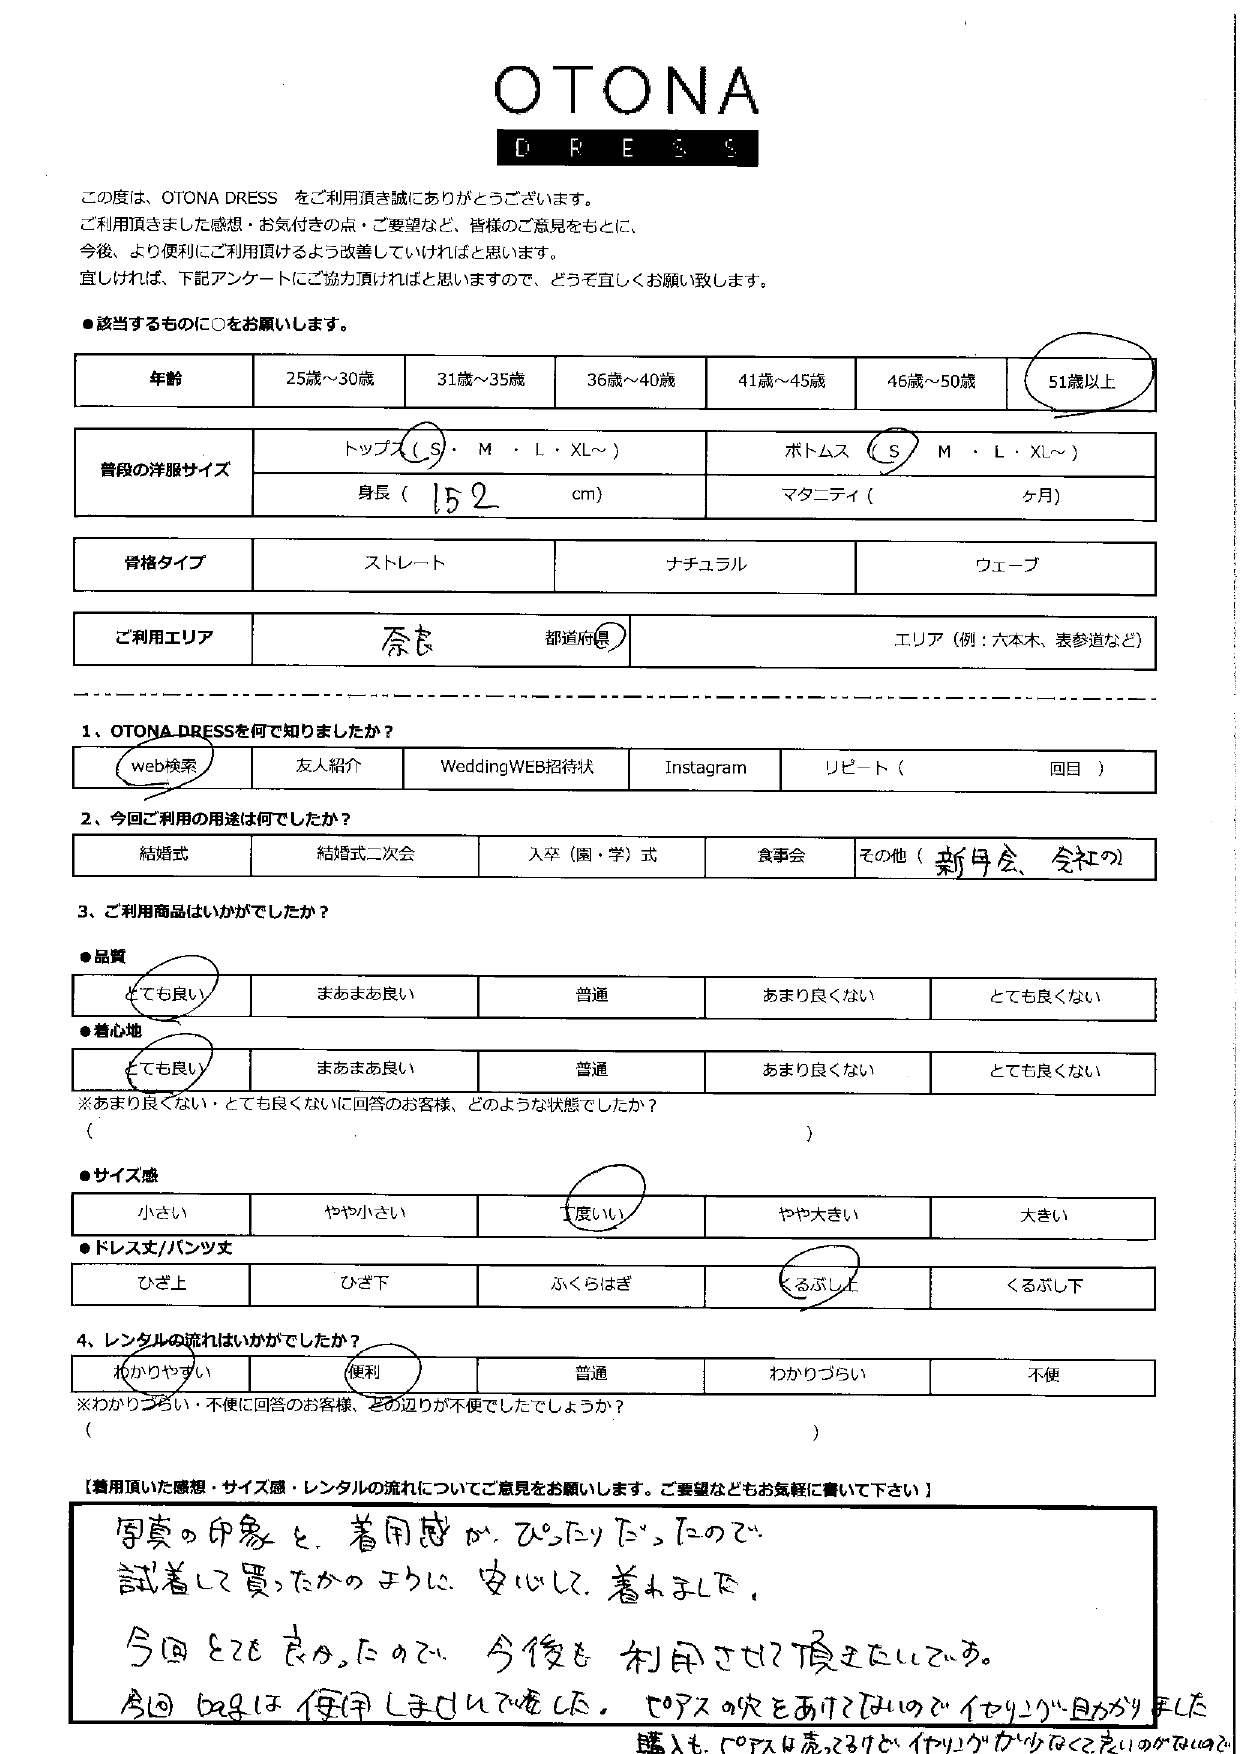 OTONA
DRESS
この度は、OTONA DRESS　をご利用頂き誠にありがとうございます。
ご利用頂きました感想・お気付きの点・ご要望など、皆様のご意見をもとに、
今後、より便利にご利用頂けるよう改善していければと思います。
宜しければ、下記アンケートにご協力頂ければと思いますので、どうぞ宜しくお願い致します。
●該当するものに○をお願いします。
年齢 25歳～30歳 31歳～35歳 36歳～40歳 41歳～45歳 46歳～50歳 51歳以上
普段の洋服サイズ トップス（ S ・ M ・ L ・ XL～ ） ボトムス （ S M ・ L ・ XL～ ）
身長（ 152 cm） マタニティ（ ヶ月）
骨格タイプ ストレート ナチュラル ウェーブ
ご利用エリア 奈良 都道府県 エリア（例：六本木、表参道など）
1、OTONA DRESSを何で知りましたか？
web検索 友人紹介 WeddingWEB招待状 Instagram リピート（ 回目 ）
2、今回ご利用の用途は何でしたか？
結婚式 結婚式二次会 入卒（園・学）式 食事会 その他（ 新年会、会社の）
3、ご利用商品はいかがでしたか？
●品質
とても良い まあまあ良い 普通 あまり良くない とても良くない
●着心地
とても良い まあまあ良い 普通 あまり良くない とても良くない
※あまり良くない・とても良くないに回答のお客様、どのような状態でしたか？
（ ）
●サイズ感
小さい やや小さい 丁度いい やや大きい 大きい
●ドレス丈/パンツ丈
ひざ上 ひざ下 ふくらはぎ くるぶし上 くるぶし下
4、レンタルの流れはいかがでしたか？
わかりやすい 便利 普通 わかりづらい 不便
※わかりづらい・不便に回答のお客様、どの辺りが不便でしたでしょうか？
（ ）
【着用頂いた感想・サイズ感・レンタルの流れについてご意見をお願いします。ご要望などもお気軽に書いて下さい 】
写真の印象と、着用感が、ぴったりだったので
試着して買ったかのように、安心して、着れました。
今回とても良かったので、今後も利用させて頂きたいです。
今回bagは使用しませんでした。ピアスの穴をあけてないのでイヤリング助かりました
購入も、ピアスは売ってるけど、イヤリングが少なくて良いのがないので